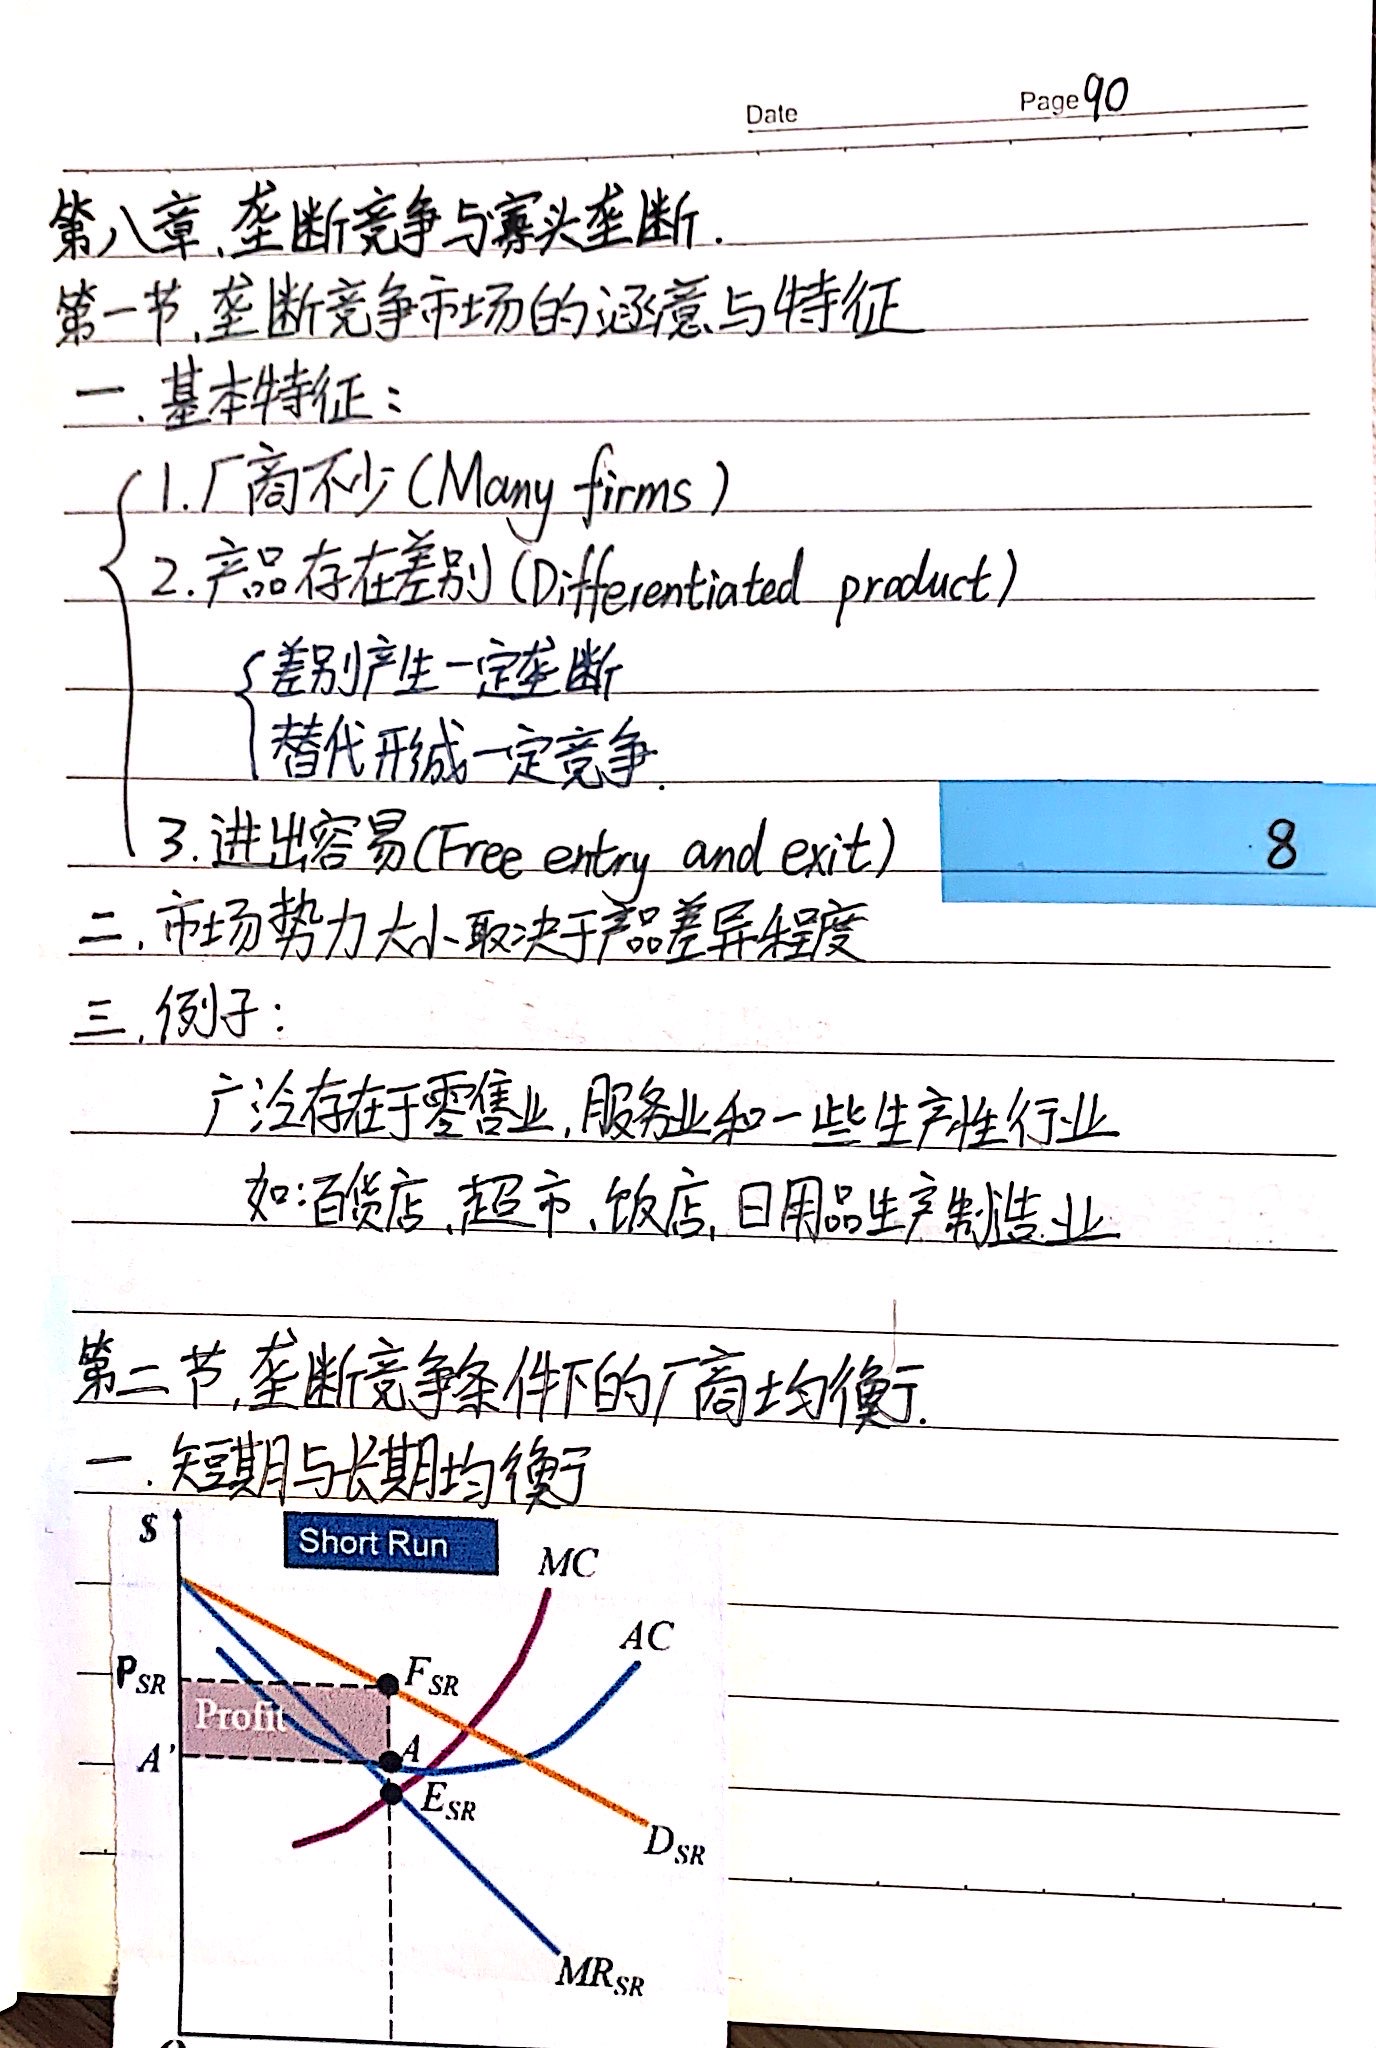 Date Page 90
第八章、垄断竞争与寡头垄断.
第一节、垄断竞争市场的涵意与特征
一. 基本特征:
1. 厂商不少(Many firms)
2. 产品存在差别(Differentiated product)
差别产生一定垄断
替代形成一定竞争.
3. 进出容易(Free entry and exit)
8
二. 市场势力大小取决于产品差异程度
三. 例子:
广泛存在于零售业,服务业和一些生产性行业
如:百货店、超市、饭店,日用品生产制造业
第二节、垄断竞争条件下的厂商均衡.
一. 短期与长期均衡
$
Short Run
MC
AC
PSR
FSR
Profit
A'
A
ESR
DSR
MRSR